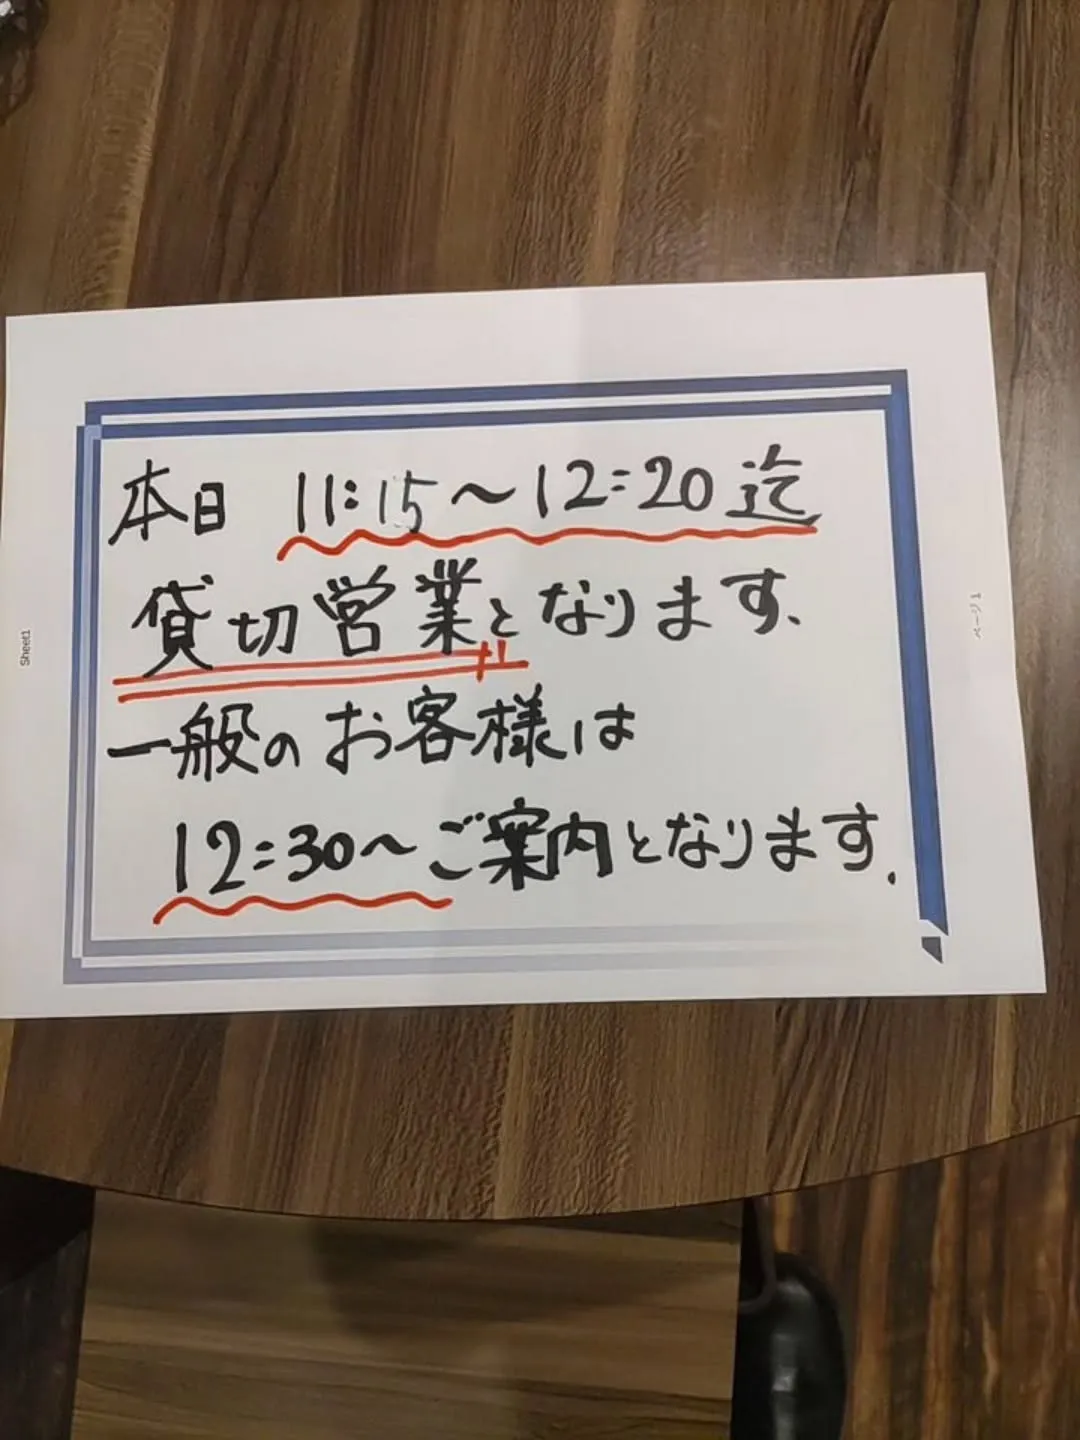 本日 11:15～12:20迄
貸切営業となります、
一般のお客様は
12:30～ご案内となります.
Sheet1
ページ 1